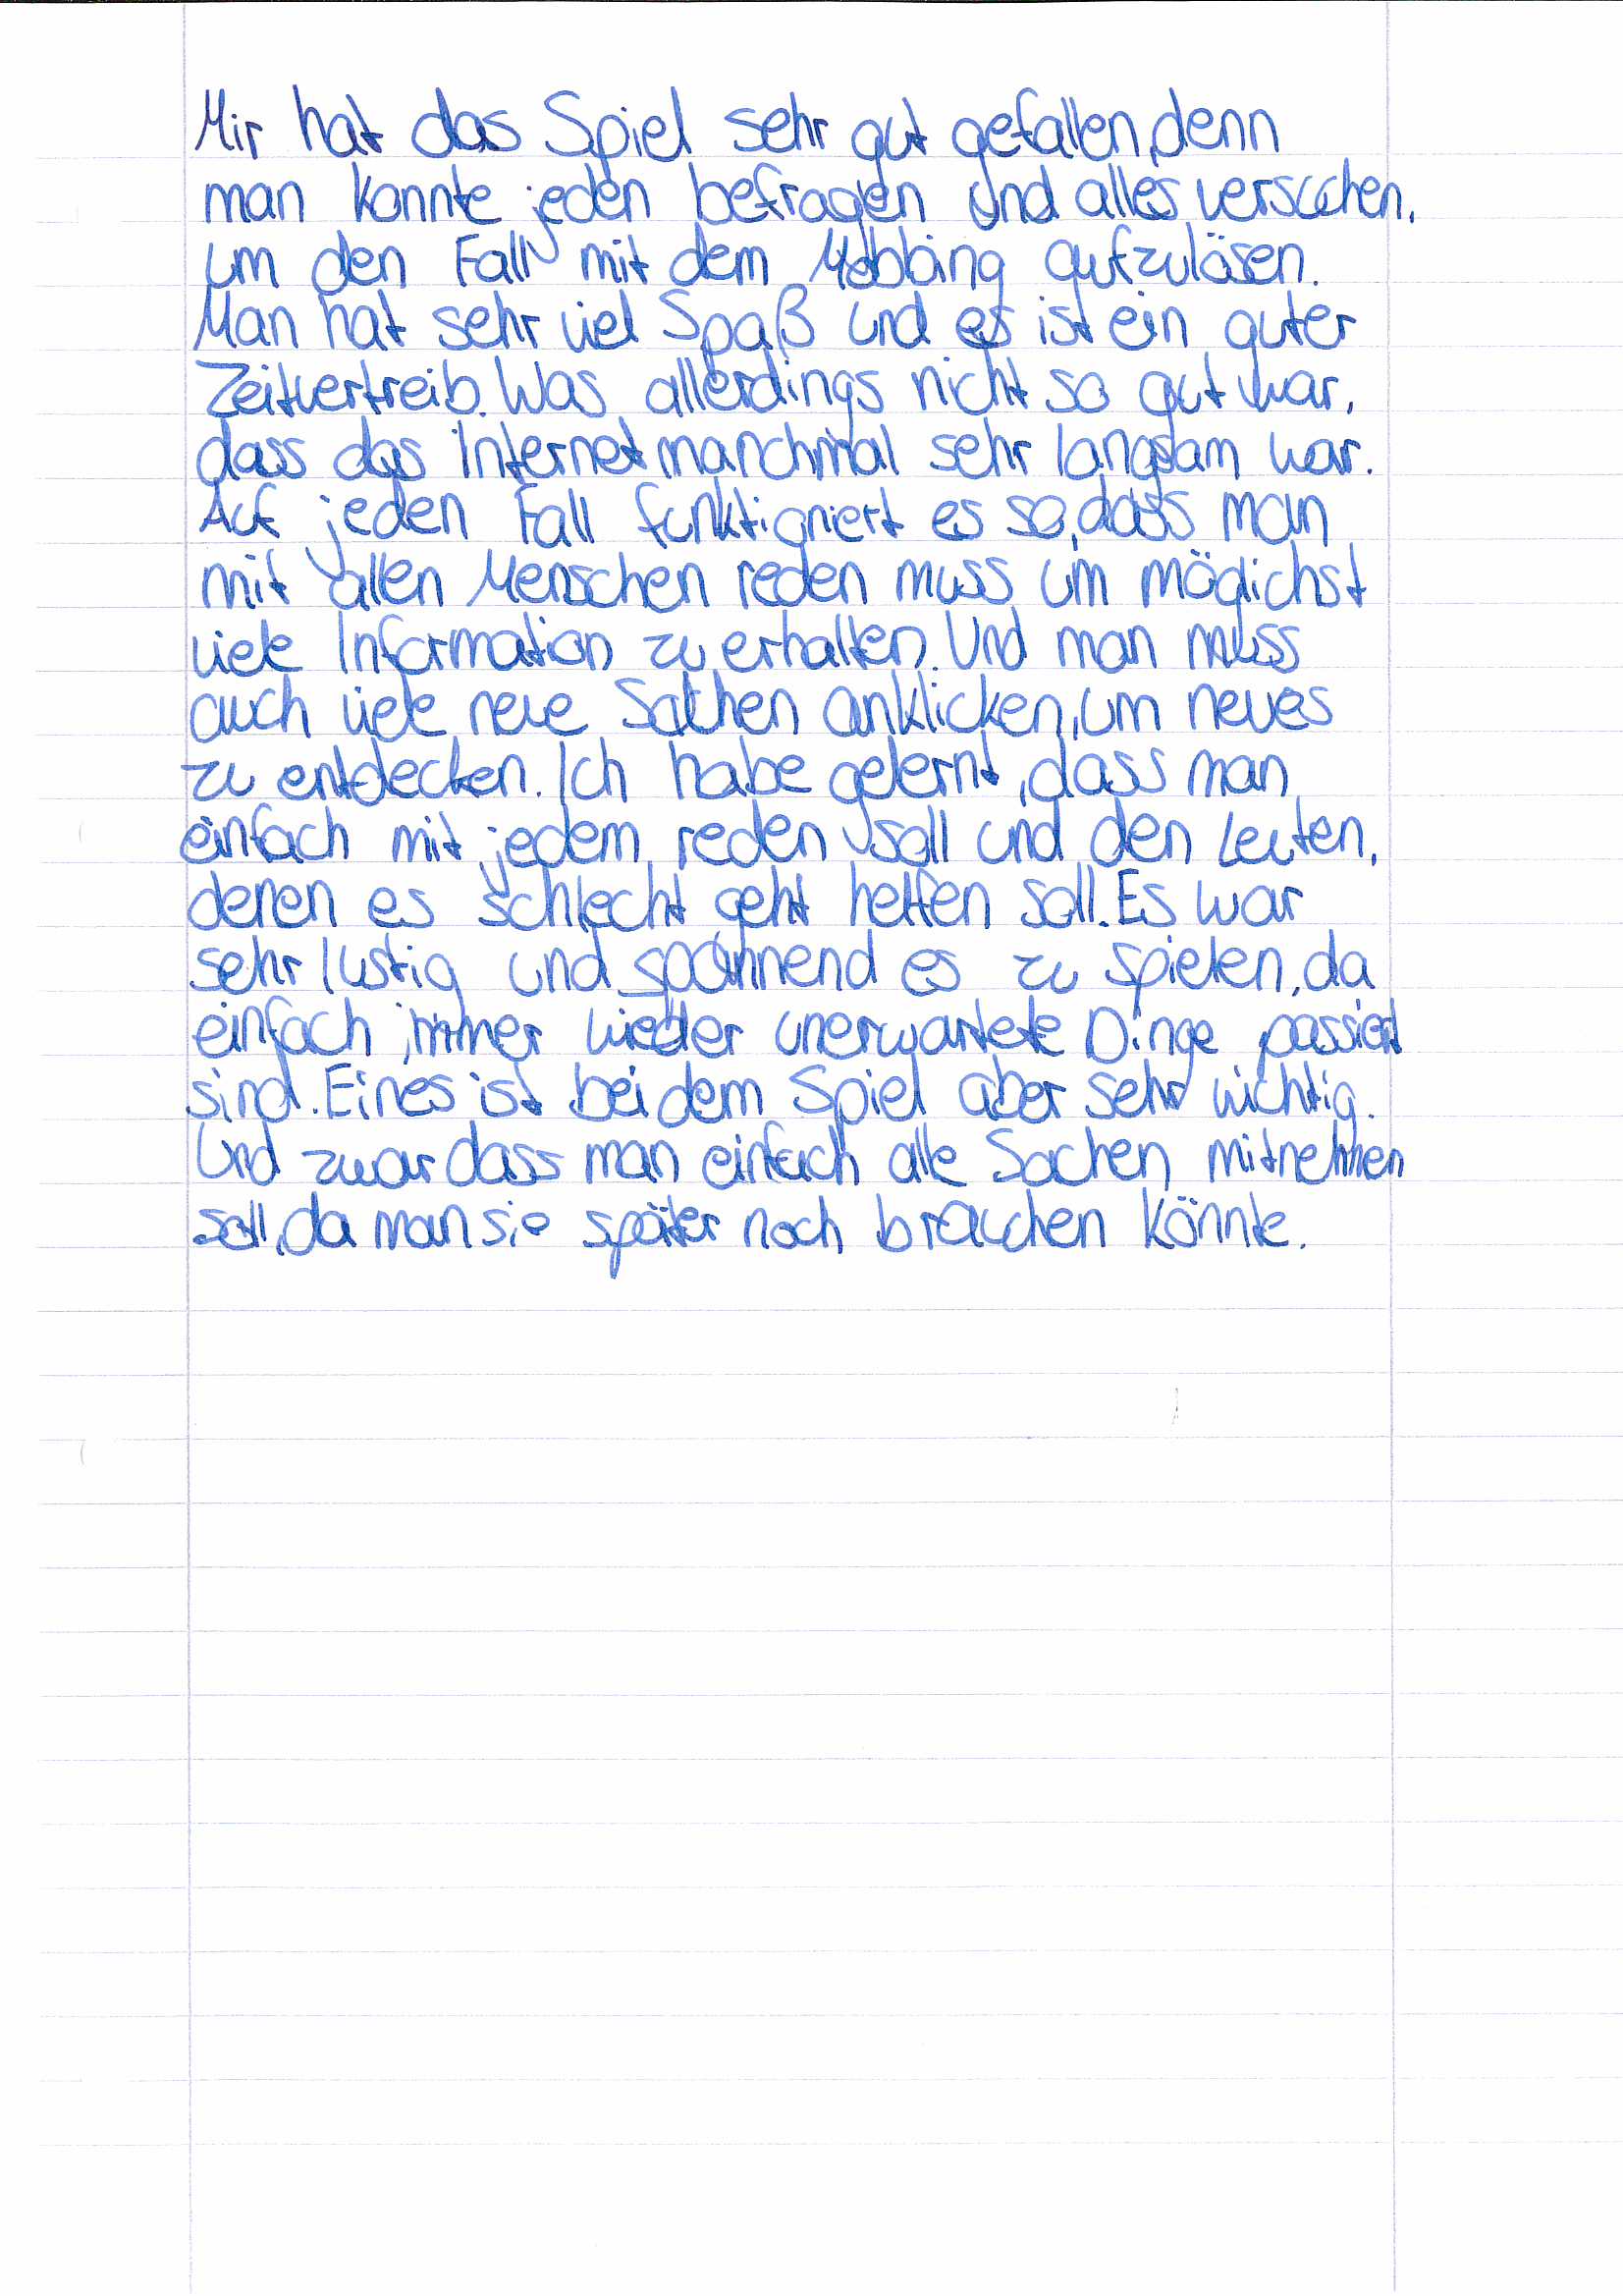 Mir hat das Spiel sehr gut gefallen, denn
man konnte jeden befragen und alles versuchen,
um den Fall mit dem Mobbing aufzulösen.
Man hat sehr viel Spaß und es ist ein guter
Zeitvertreib. Was allerdings nicht so gut war,
dass das Internet manchmal sehr langsam war.
Auf jeden Fall funktioniert es so, dass man
mit allen Menschen reden muss um möglichst
viele Information zu erhalten. Und man muss
auch viele neue Sachen anklicken, um neues
zu entdecken. Ich habe gelernt, dass man
einfach mit jedem reden soll und den Leuten,
denen es schlecht geht helfen soll. Es war
sehr lustig und spannend es zu spielen, da
einfach immer wieder unerwartete Dinge passiert
sind. Eines ist bei dem Spiel aber sehr wichtig.
Und zwar dass man einfach alle Sachen mitnehmen
soll, da man sie später noch brauchen könnte.